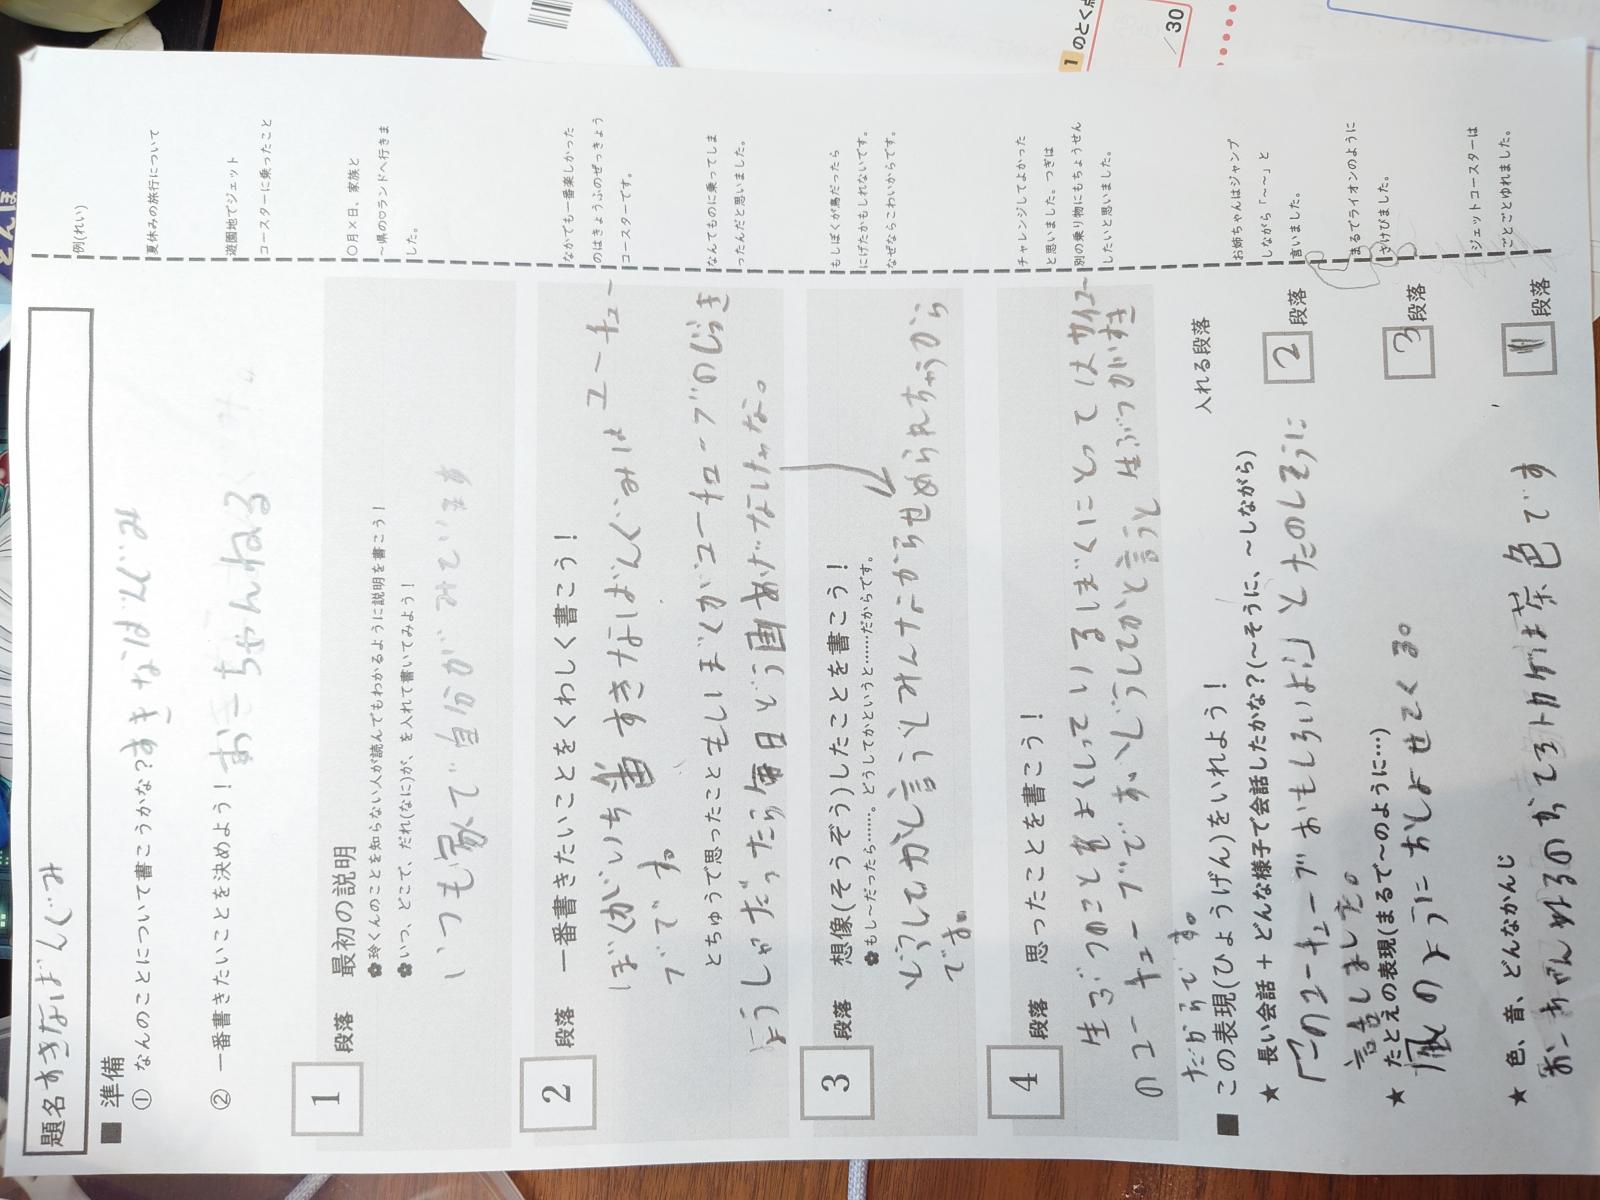 題名 すきなばんぐみ
■ 準備
① なんのことについて書こうかな?すきなばんぐみ
② 一番書きたいことを決めよう! おーちゃんねる
1 段落 最初の説明
✿玲くんのことを知らない人が読んでもわかるように説明を書こう!
✿いつ、どこで、だれ(なに)が、を入れて書いてみよう!
いつも家で自分がみています
2 段落 一番書きたいことをくわしく書こう!
ぼくがいち番すきなばんぐみはユーチュー
ブです。
とちゅうで思ったこともしぼくがユーチューブのじらき
ょうしゃだったら毎日どう画あげなしちゃな。
3 段落 想像(そうぞう)したことを書こう!
✿もし~だったら……。どうしてかというと……だからです。
どうしてかと言うとみんなからせめられちゃうから
です。
4 段落 思ったことを書こう!
生ぶつのことをよくしっているぼくにとってはサイコー
のユーチューブです。どうしてかと言うと生ぶつがすき
だからです。
■ この表現(ひょうげん)をいれよう! 入れる段落
★ 長い会話 + どんな様子で会話したかな?(~そうに、~しながら)
「このユーチューブおもしろいよ!」とたのしそうに 2 段落
言いました。
★ たとえの表現(まるで~のように…)
風のようにおしよせてくる。 3 段落
★ 色、音、どんなかんじ
おーちゃんねるのおてろトカゲは茶色です 1 段落
例(れい)
夏休みの旅行について
遊園地でジェット
コースターに乗ったこと
〇月×日、家族と
~県の♡ランドへ行きま
した。
なかでも一番楽しかった
のはきょうふのぜっきょう
コースターです。
なんてものに乗ってしま
ったんだと思いました。
もしぼくが鳥だったら
にげたかもしれないです。
なぜならこわいからです。
チャレンジしてよかった
と思いました。つぎは
別の乗り物にもちょうせん
したいと思いました。
お姉ちゃんはジャンプ
しながら「~~」と
言いました。
まるでライオンのように
さけびました。
ジェットコースターは
ごとごとゆれました。
1 のとく点
/30